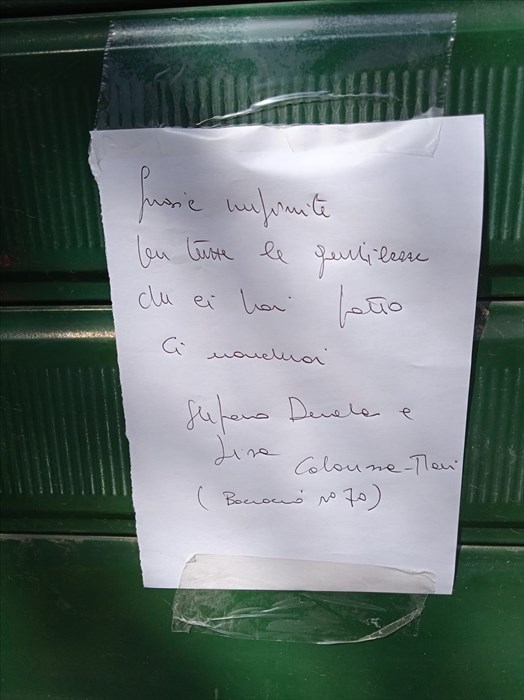 Grazie infinite
per tutte le gentilezze
che ci hai fatto
Ci mancherai
Stefano Daniela e
Lisa Colonna-
( n° 70)